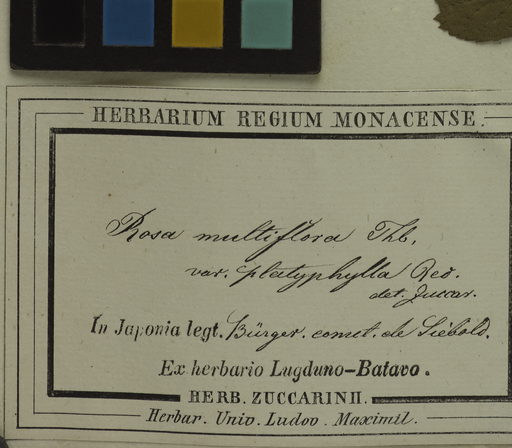 HERBARIUM REGIUM MONACENSE.
Rosa multiflora Thb.
var. platyphylla Red.
det. Zuccar.
In Japonia legt. Bürger. comt. de Siebold.
Ex herbario Lugduno-Batavo.
HERB. ZUCCARINII.
Herbar. Univ. Ludov. Maximil.